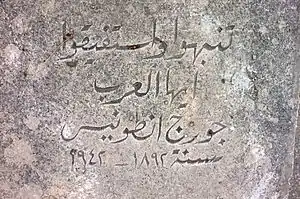 تنبهوا واستفيقوا
ايها العرب
جورج انطونيس
سنة ١٨٩٢ - ١٩٤٢